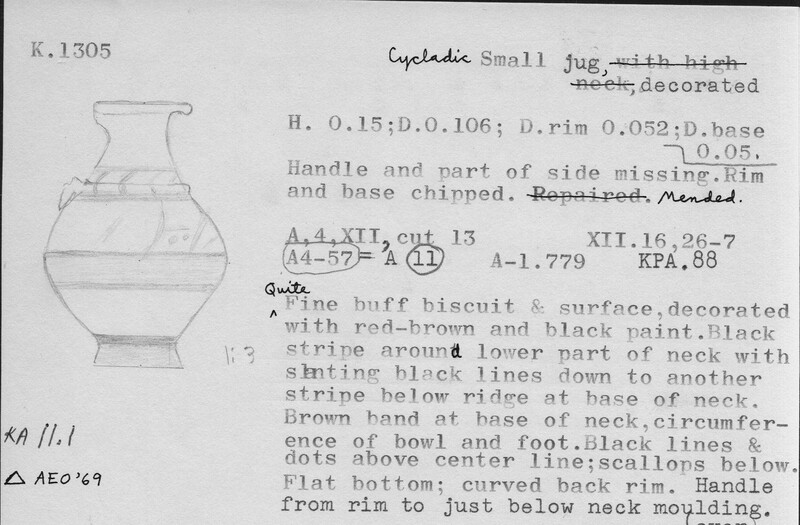 K.1305
Cycladic Small jug, with high
neck, decorated
H. 0.15;D.0.106; D.rim 0.052;D.base
0.05.
Handle and part of side missing.Rim
and base chipped. Repaired. Mended.
A,4,XII, cut 13 XII.16,26-7
A4-57 = A 11 A-1.779 KPA.88
Quite
^ Fine buff biscuit & surface,decorated
with red-brown and black paint.Black
stripe around lower part of neck with
slnting black lines down to another
stripe below ridge at base of neck.
Brown band at base of neck,circumfer-
ence of bowl and foot.Black lines &
dots above center line;scallops below.
Flat bottom; curved back rim. Handle
from rim to just below neck moulding.
1:3
KA 11.1
△ AEO '69